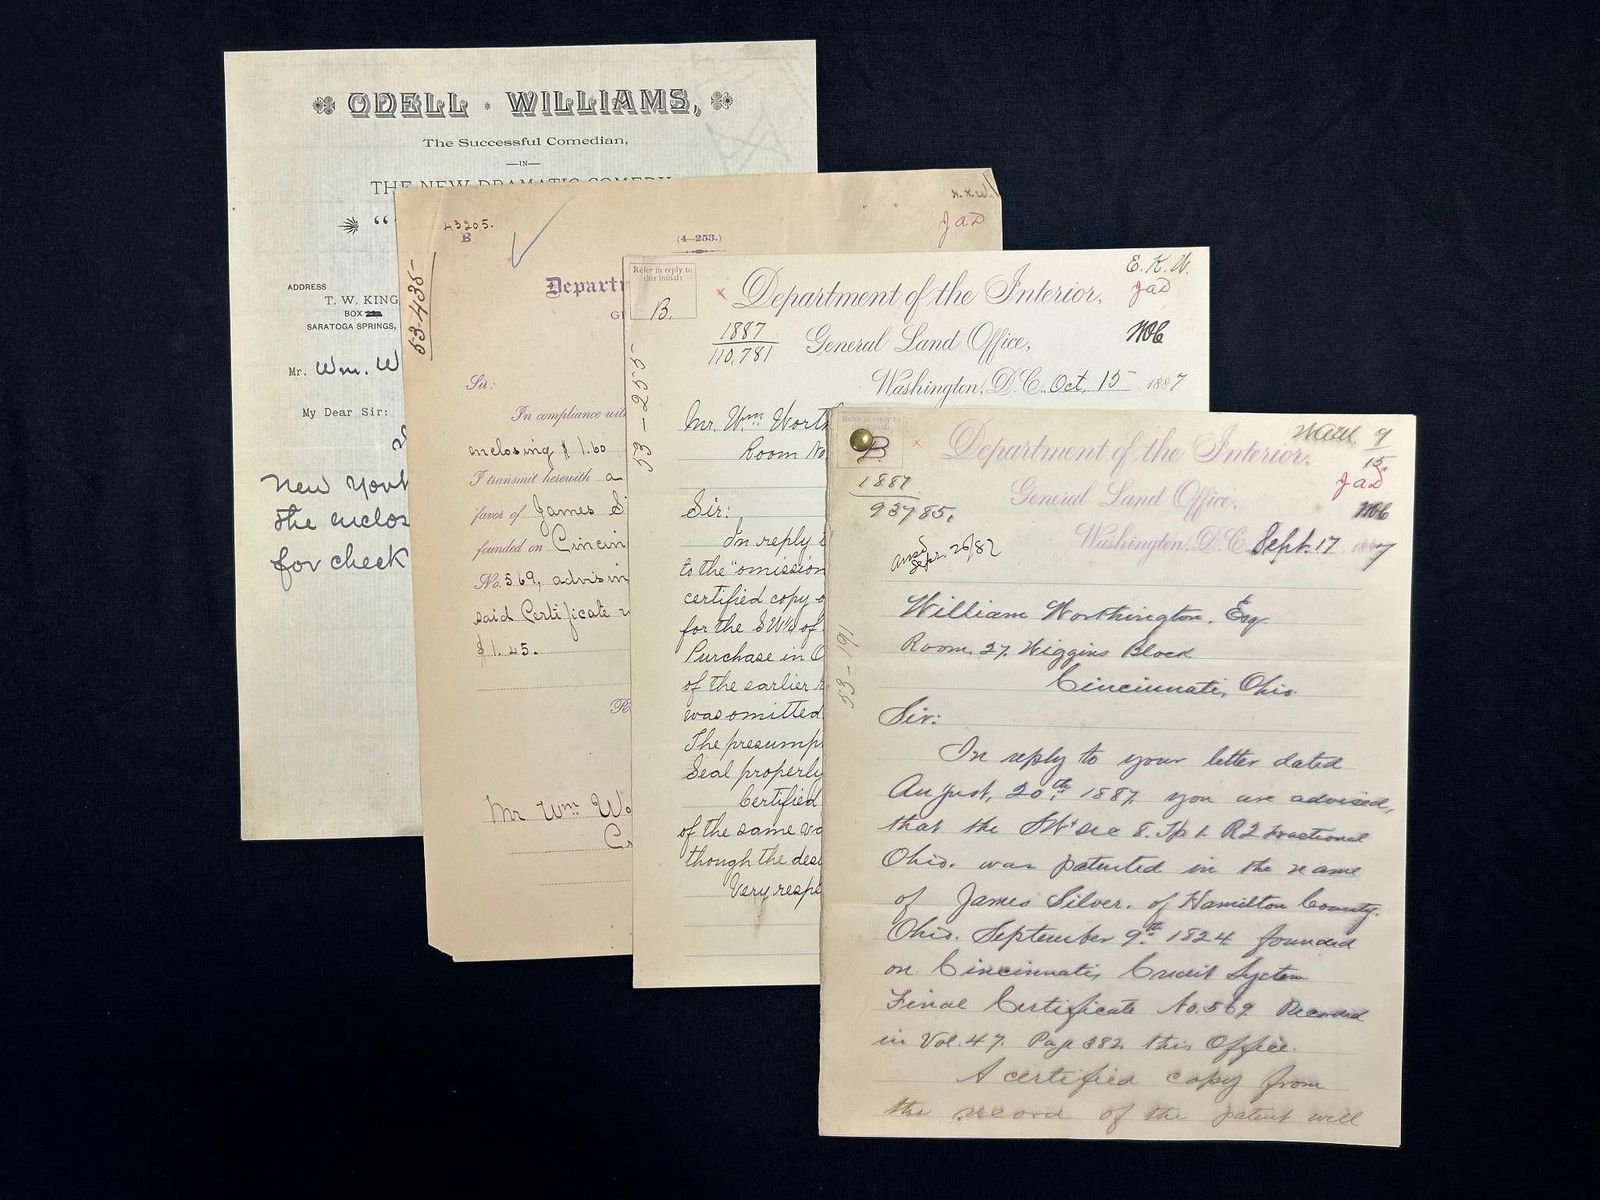 ODELL WILLIAMS,
The Successful Comedian,
—IN—
THE NEW DRAMATIC COMEDY
"
ADDRESS
T. W. KING
BOX
SARATOGA SPRINGS,
Mr. Wm. W
My Dear Sir:
New York
the enclos
for check
43205.
B
(4—253.)
JaD
53435
Departm
Sir:
In compliance with
enclosing $1.60
I transmit herewith a
favor of James S
founded on Cincin
No. 569, advisin
said Certificate
$1.45.
Mr Wm Wo
Refer in reply to
this initial:
B.
Department of the Interior,
E. K. W.
JaD
1887
110,781
General Land Office,
Washington, D.C., Oct. 15 1887
53-255
Mr. Wm Worth
Room No
Sir:
In reply t
to the "omission
certified copy o
for the SW⅟₄ of
Purchase in O
of the earlier
was omitted
The presump
Seal properly
Certified
of the same va
though the des
Very respe
Refer in reply to
B.
Department of the Interior,
JaD
1887
93785.
General Land Office,
Washington, D.C. Sept. 17 1887
Sept. 26/87
53-191
William Worthington, Esq
Room, 27, Wiggins Block
Cincinnati, Ohio.
Sir:
In reply to your letter dated
August, 20th, 1887, you are advised,
that the SW⅟₄ sec 8. Tp 1. R2 fractional
Ohio. was patented in the name
of James Silver. of Hamilton County.
Ohio. September 9th 1824 founded
on Cincinnati, Credit System
Final Certificate No. 569 Recorded
in Vol. 47. Page 382, this Office.
A certified copy from
the record of the patent will